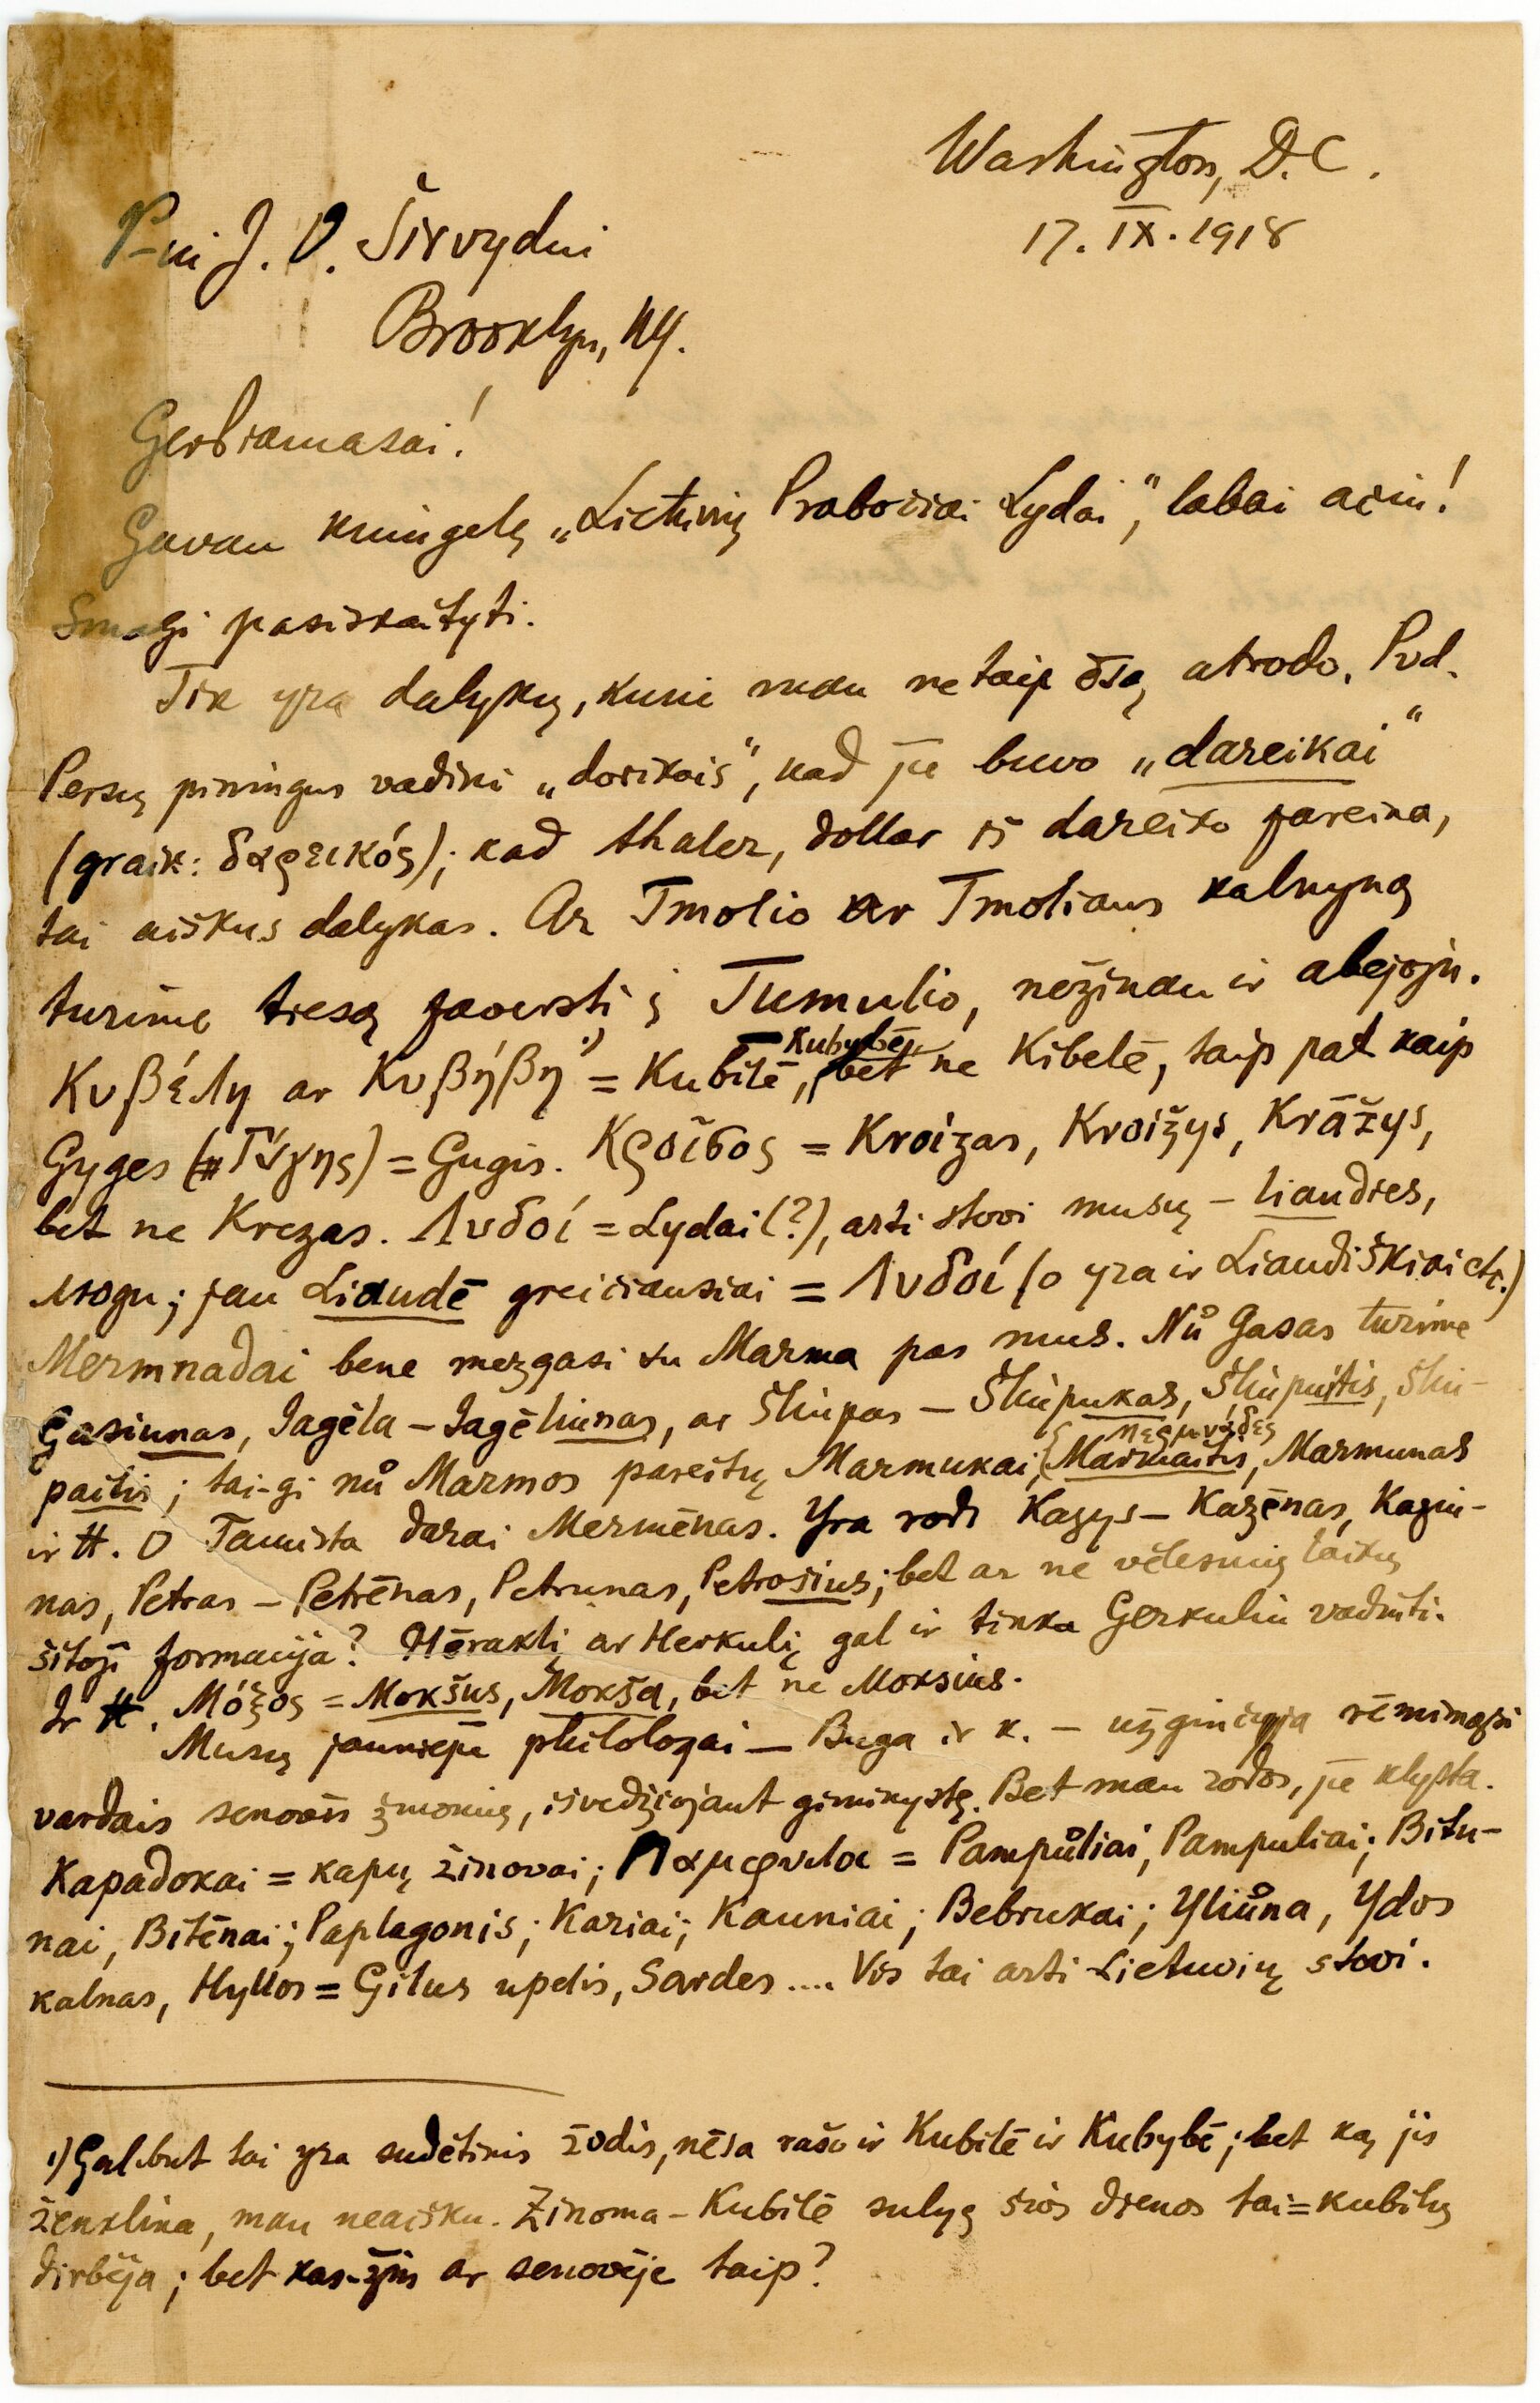 Washington, D.C.
17. IX. 1918
P-ui J. O. Širvydui
Brooklyn, NY.
Gerbiamasai!
Gavau kningelę „Lietuvių Prabočiai Lydai“, labai ačiu!
Smagi pasiskaityti.
Tik yra dalykų, kurie man netaip ēsą atrodo. Pvd.
Persų piningus vadini „dorikais“, kad jie buvo „dareikai“
(graik: δαρεικός); kad thaler, dollar iš dareiko pareina,
tai aiškus dalykas. Ar Tmolio ar Tmoliaus kalnyną
turime tiesą paversti į Tumulio, nežinau ir abejoju.
Κυβέλη ar Κυβήβη ¹) = Kubilē, Kubybē, bet ne Kibelē, taip pat kaip
Gyges (Γύγης) = Gugis. Κροῖσος = Kroizas, Kroižys, Krāžys,
bet ne Krezas. Λυδοί = Lydai (?), arti stovi musų – liaudies,
žmogu; jau Liaudē greičiausiai = Λυδοί (o yra ir Liaudiškiai etc.)
Mermnadai bene mezgasi su Marma pas mus. Nů Gasas turime
Gasiunas, Jagēla – Jagēliunas, ar Šliupas – Šliupukas, Šliupuitis, Šliu-
paitis; tai-gi nů Marmos pareitų Marmukai, Μερμνάδες Marmaitis, Marmunas
ir tt. O Tamista darai Mermēnas. Yra rods Kazys – Kazēnas, Kaziu-
nas, Petras – Petrēnas, Petrunas, Petrošius; bet ar ne vēlesnių laikų
šitoji formacija? Hērakli ar Herkulį gal ir tinka Gerkuliu vadinti.
Ir tt. Μόξος = Mokšus, Mokša, bet ne Moksius.
Musų jaunieji philologai – Buga ir k. – užginčyja rēmimąsi
vardais senovēs žmonių, išvedžiojant giminystę. Bet man rodos, jie klysta.
Kapadokai = kapų žinovai; Παμφυλοι = Pampůliai, Pampuliai; Bitu-
nai, Bitēnai; Paplagonis; Kariai; Kauniai; Bebrukai; Yliůna, Ydos
kalnas, Hyllos = Gilus upelis, Sardes .... Vis tai arti Lietuvių stovi.
¹) Gal but tai yra sudētinis žodis, nēsa rašo ir Kubilē ir Kubybē; bet ką jis
ženklina, man neaišku. Žinoma – Kubilē sulyg šios dienos tai = kubilų
dirbēja; bet kas-žin ar senovēje taip?